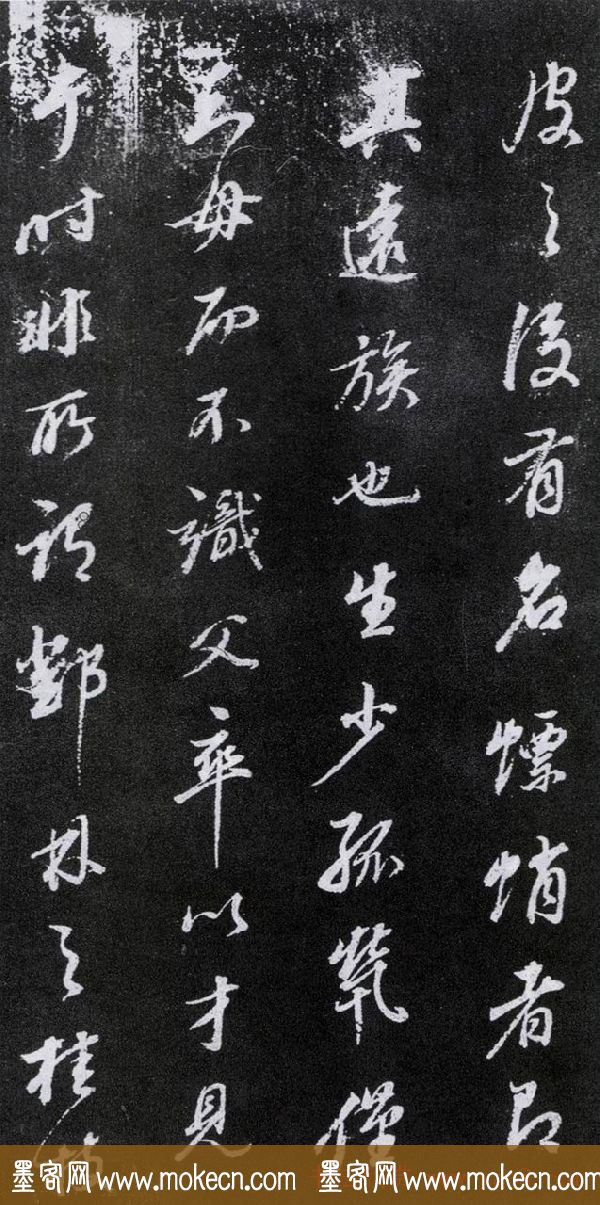 皮之後有名螵蛸者即
其遠族也生少孤煢僅
知母而不識父卒以才見
于時非所謂鄧林之桂
墨客网 www.mokecn.com 墨客网 www.mokecn.com